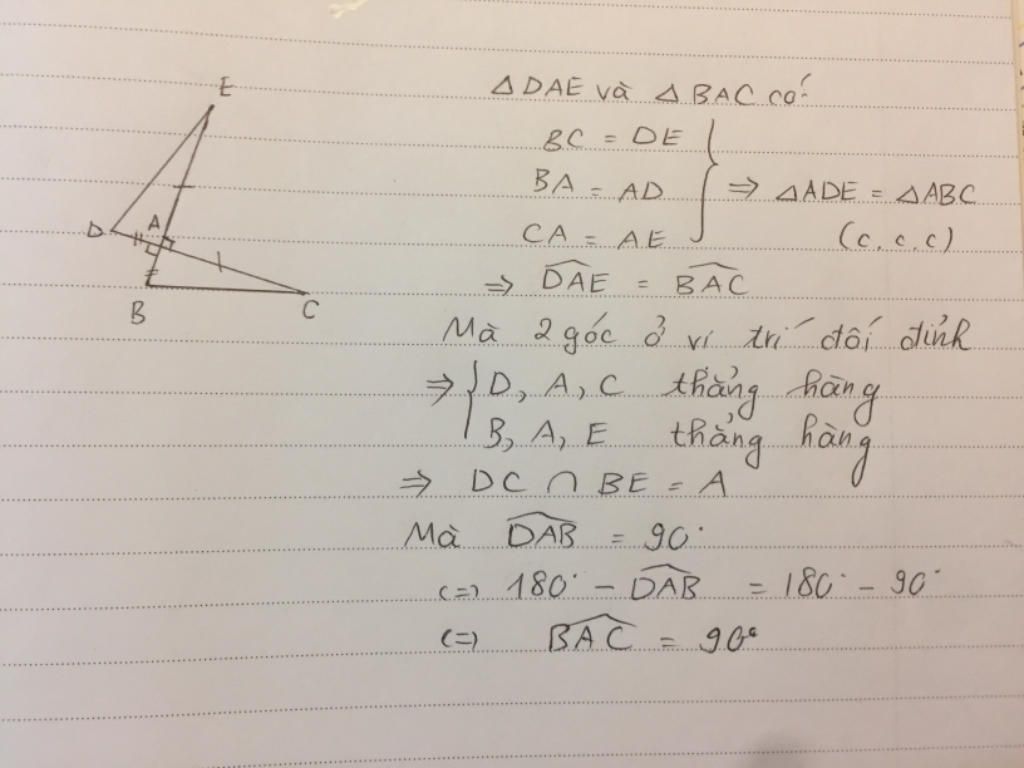 E
D
A
B
C
△DAE và △BAC có
BC = DE
BA = AD
CA = AE
⇒ △ADE = △ABC
(c.c.c)
⇒ DAE = BAC
Mà 2 góc ở ví trí đối đỉnh
⇒ { D, A, C thẳng hàng
B, A, E thẳng hàng
⇒ DC ∩ BE = A
Mà DAB = 90°
(=) 180° - DAB = 180° - 90°
(=) BAC = 90°